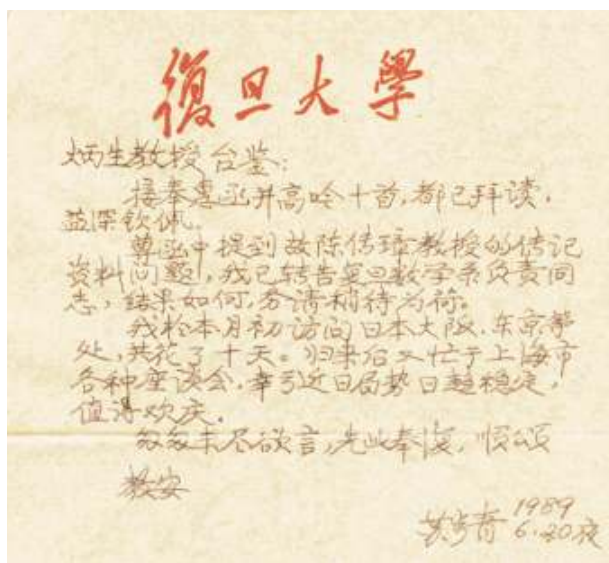 復旦大學
炳生教授台鉴：
接奉惠函并高吟十首，都已拜读，
益深钦佩。
尊函中提到故陈传璋教授的传记
资料问题，我已转告复旦数学系负责同
志，结果如何，务请稍待为荷。
我于本月初访问日本大阪、东京等
处，共花了十天。归来后又忙于上海市
各种座谈会，幸引近日局势日趋稳定，
值得欢庆。
匆匆未尽欲言，先此奉復，顺颂
教安
苏步青 1989
6.20夜